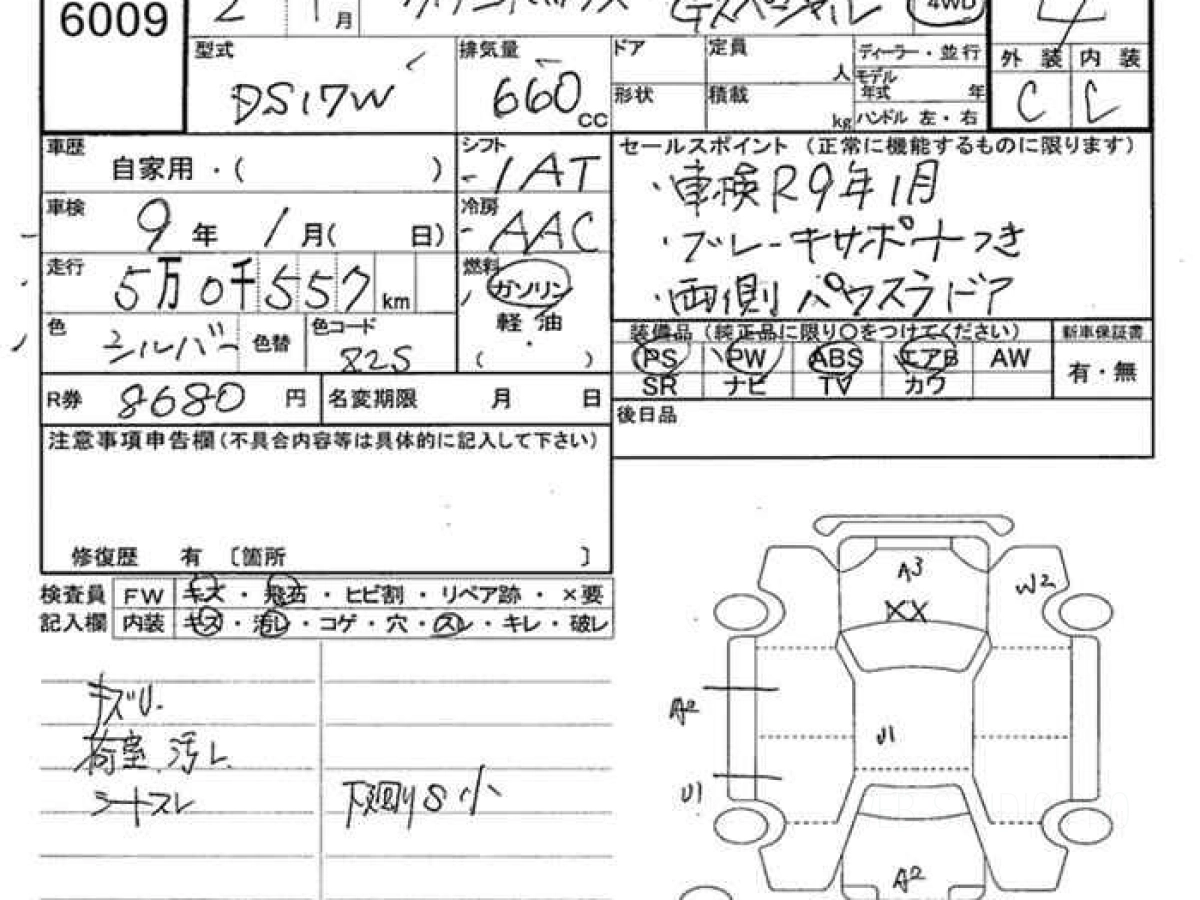 6009
2 月 Gスペシャル 4WD 4
型式 排気量 ドア 定員 人 ディーラー・並行 外装 内装
DS17W 660 cc 形状 積載 kg モデル年式 年 C C
ハンドル 左・右
車歴 自家用・( ) シフト IAT
セールスポイント (正常に機能するものに限ります)
・車検R9年1月
車検 9年 1月( 日) 冷房 AAC
・ブレーキサポートつき
走行 5万0千557km 燃料 ガソリン
・両側パワスラドア
軽油
( ・ )
色 シルバー 色替 色コード 82S
装備品 (純正品に限り○をつけてください) 新車保証書
PS PW ABS エアB AW 有・無
SR ナビ TV カワ
R券 8680 円 名変期限 月 日
後日品
注意事項申告欄(不具合内容等は具体的に記入して下さい)
修復歴 有 〔箇所 〕
検査員 FW キズ・飛石・ヒビ割・リペア跡・×要
記入欄 内装 キズ・汚レ・コゲ・穴・スレ・キレ・破レ
キズU.
荷室 汚レ.
シートスレ
下廻りS小
A3
XX
W2
A2
U1
U1
A2